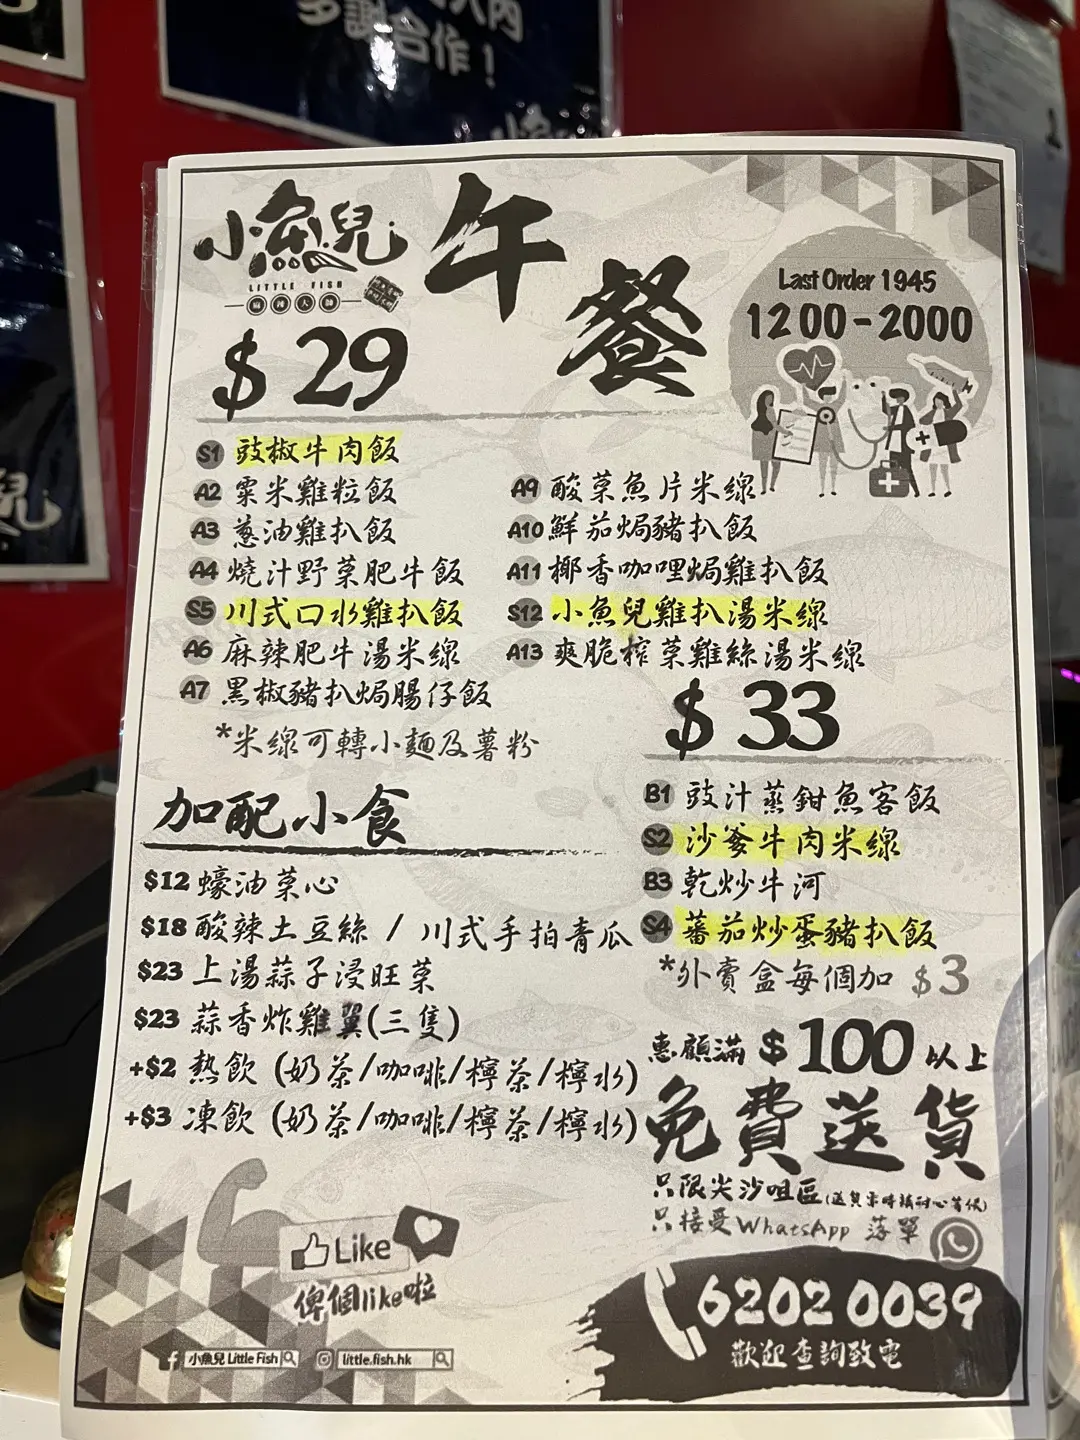 多謝合作！
小魚兒
LITTLE FISH
麻辣大師
午餐
Last Order 1945
1200-2000
$29
S1 豉椒牛肉飯
A2 粟米雞粒飯
A3 蔥油雞扒飯
A4 燒汁野菜肥牛飯
S5 川式口水雞扒飯
A6 麻辣肥牛湯米線
A7 黑椒豬扒焗腸仔飯
*米線可轉小麵及薯粉
A9 酸菜魚片米線
A10 鮮茄焗豬扒飯
A11 椰香咖哩焗雞扒飯
S12 小魚兒雞扒湯米線
A13 爽脆榨菜雞絲湯米線
$33
B1 豉汁蒸鉗魚客飯
S2 沙爹牛肉米線
B3 乾炒牛河
S4 蕃茄炒蛋豬扒飯
*外賣盒每個加 $3
加配小食
$12 蠔油菜心
$18 酸辣土豆絲 / 川式手拍青瓜
$23 上湯蒜子浸旺菜
$23 蒜香炸雞翼(三隻)
+$2 熱飲 (奶茶/咖啡/檸茶/檸水)
+$3 凍飲 (奶茶/咖啡/檸茶/檸水)
惠顧滿 $100 以上
免費送貨
只限尖沙咀區(送貨需時請耐心等候)
只接受WhatsApp 落單
6202 0039
歡迎查詢致電
Like
俾個like啦
小魚兒 Little Fish
little.fish.hk